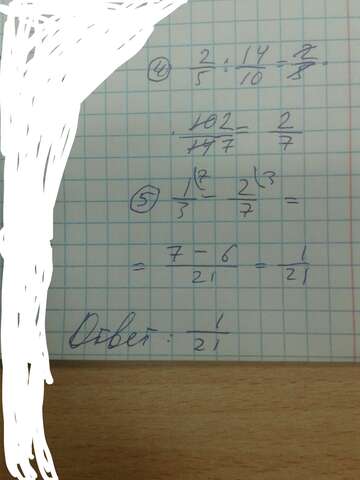 ④ 2/5 : 14/10 = 2/5 ·
· 10 2/14 7 = 2/7
⑤ 1/3 (7 - 2/7 (3 =
= 7 - 6/21 = 1/21
Ответ: 1/21